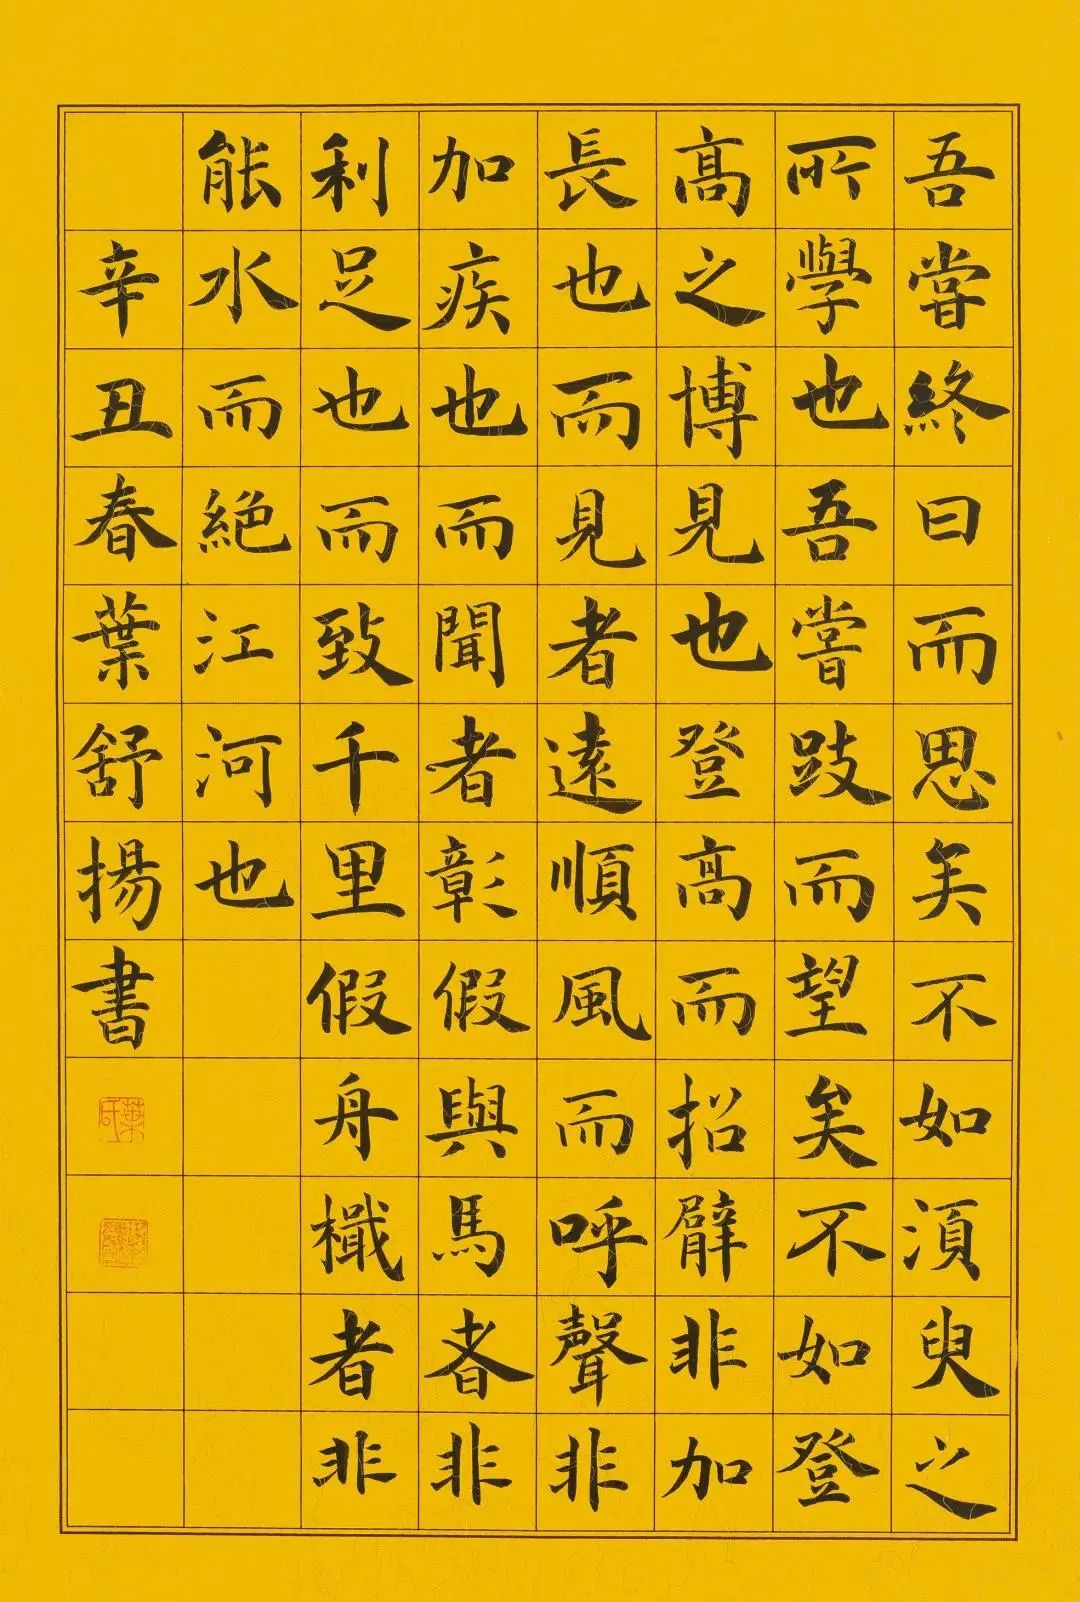 吾嘗終日而思矣不如須臾之
所學也吾嘗跂而望矣不如登
高之博見也登高而招臂非加
長也而見者遠順風而呼聲非
加疾也而聞者彰假輿馬者非
利足也而致千里假舟檝者非
能水而絕江河也
辛丑春葉舒揚書
葉氏